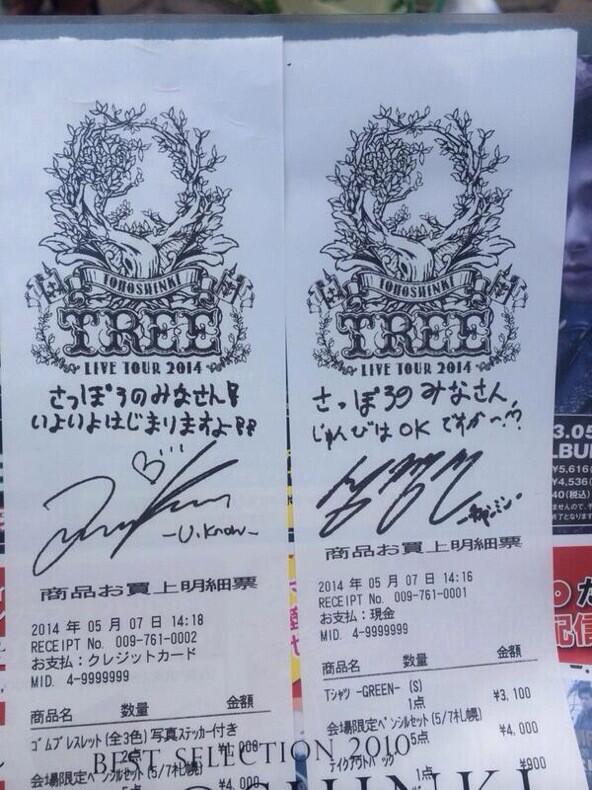 TOHOSHINKI
TREE
LIVE TOUR 2014
さっぽろのみなさん!!
いよいよはじまりますよ!!
-U.Know-
商品お買上明細票
2014 年 05 月 07 日 14:18
RECEIPT No. 009-761-0002
お支払:クレジットカード
MID. 4-9999999
商品名 数量 金額
ゴムブレスレット(全3色)写真ステッカー付き
2点
会場限定ペンシルセット(5/7札幌)
5点 ¥4,000
TOHOSHINKI
TREE
LIVE TOUR 2014
さっぽろのみなさん、
じゅんびは OK ですか~!?
-チャンミン-
商品お買上明細票
2014 年 05 月 07 日 14:16
RECEIPT No. 009-761-0001
お支払:現金
MID. 4-9999999
商品名 数量 金額
Tシャツ -GREEN- (S)
1点 ¥3,100
会場限定ペンシルセット(5/7札幌)
5点 ¥4,000
テイクアウトバッグ
1点 ¥900
BEST SELECTION 2010
3.05
¥5,616
¥4,536
40(税込)
配信